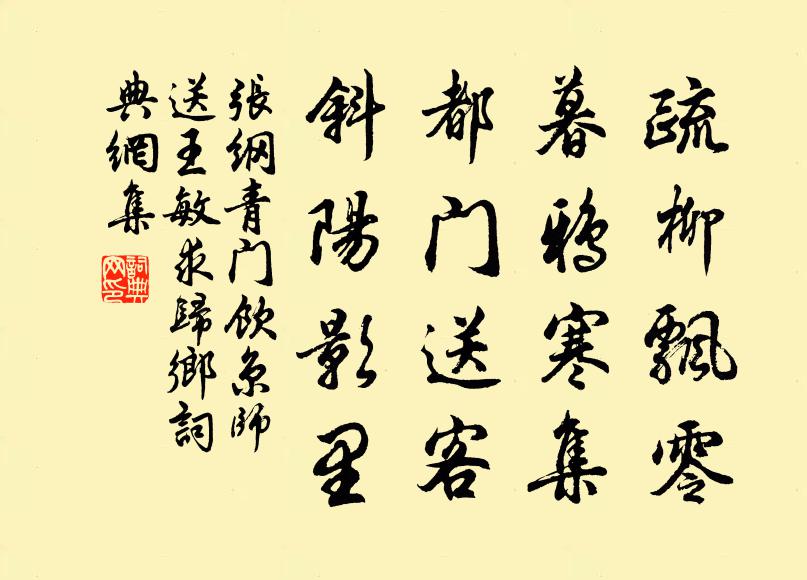 疏柳飄零
暮鴉寒集
都门送客
斜陽影里
張綱青门飲京師
送王敏求歸鄉詞
典網集
詞典
网印